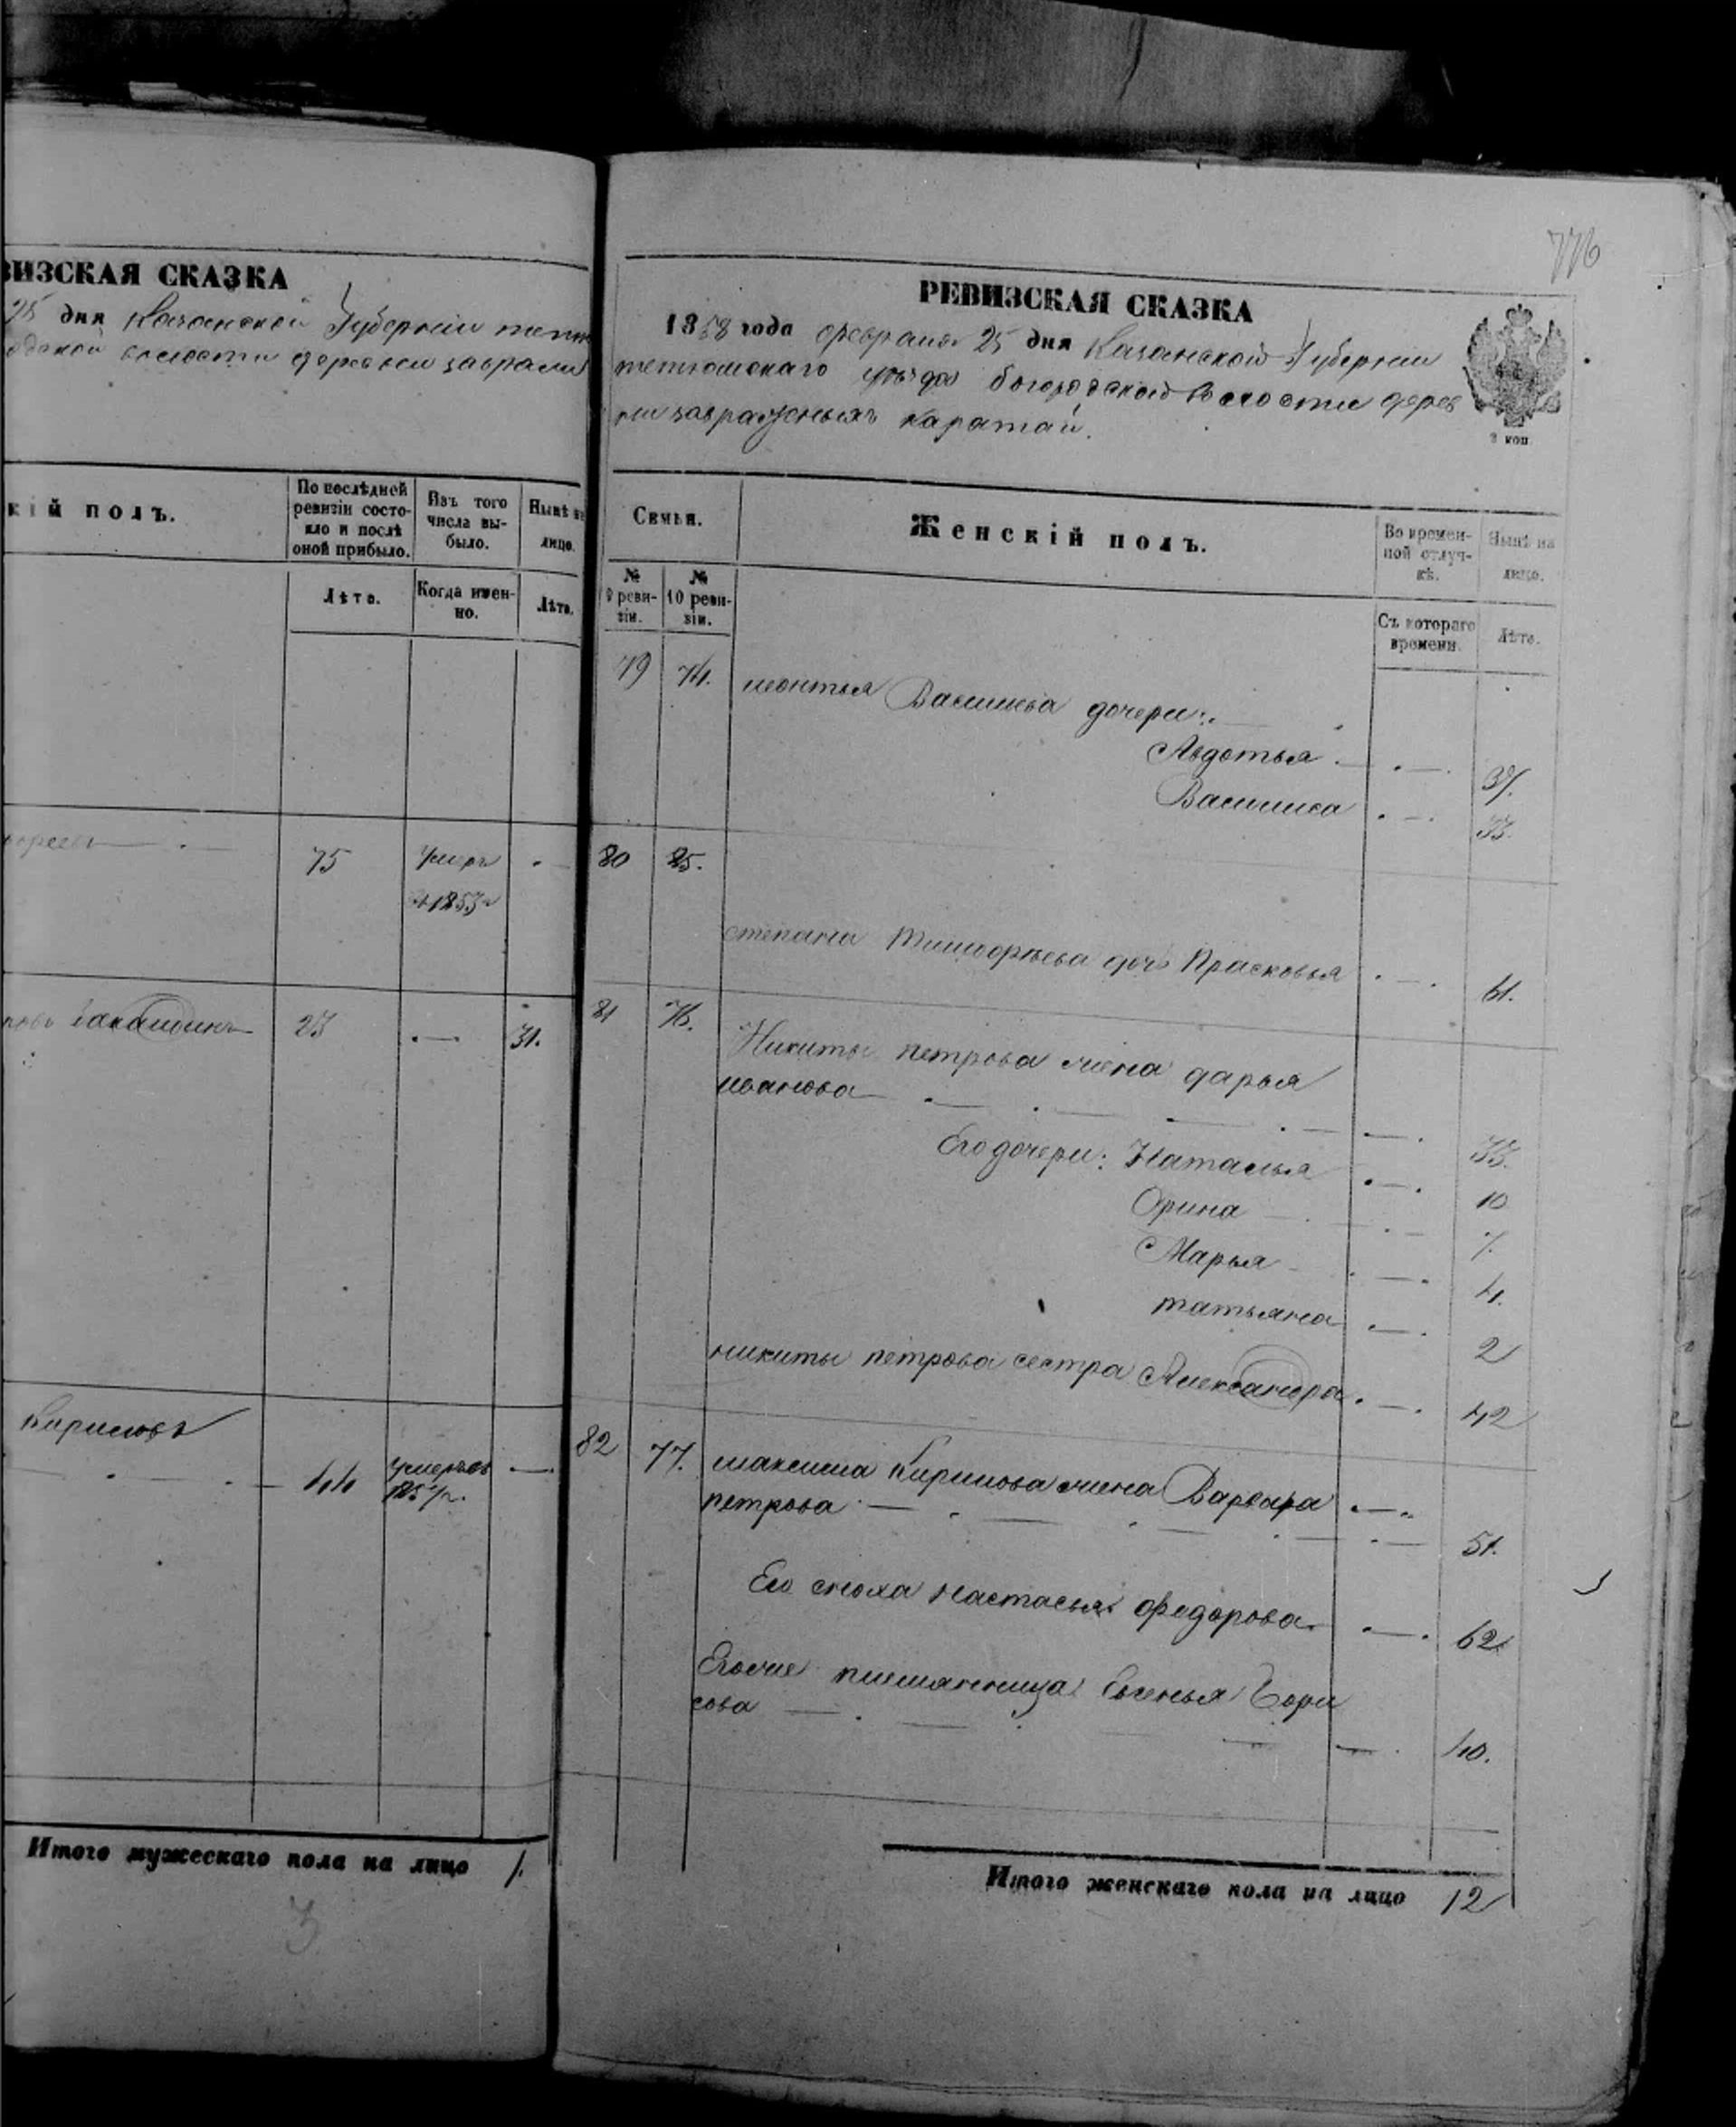 ВИЗСКАЯ СКАЗКА
25 дня Казанской Губернии тетю
одской волости деревни завраж
кій полъ.
По послѣдней ревизіи состояло и послѣ оной прибыло.
Изъ того числа выбыло.
Нынѣ на лицо.
Лѣта.
Когда именно.
Лѣта.
75 умеръ 1853
23 31.
Кириловъ
44 умеръ въ 185
Итого мужескаго пола на лицо 1.
3
776
РЕВИЗСКАЯ СКАЗКА
1858 года февраля 25 дня Казанской Губернии
тетюшскаго уѣзда богородской волости дерев
ни завражныхъ каратай.
2 коп
Семьи.
Женскій полъ.
Во временной отлучкѣ.
Нынѣ на лицо.
№ 9 ревизіи.
№ 10 ревизіи.
Съ котораго времени.
Лѣта.
79 74. леонтья Васильева дочери:
Авдотья 37.
Василиса 33.
80 85.
степана Тимофѣева дочь Прасковья 61.
81 76. Никиты петрова жена дарья
иванова 33.
Его дочери: Наталья 10
Орина 7.
Марья 4.
татьяна 2
никиты петрова сестра Александра 42
82 77. максима Кирилова жена Варвара
петрова 51.
Его сноха настасья федорова 62
Егоже племянница Евгенья Бори
сова 40.
Итого женскаго пола на лицо 12